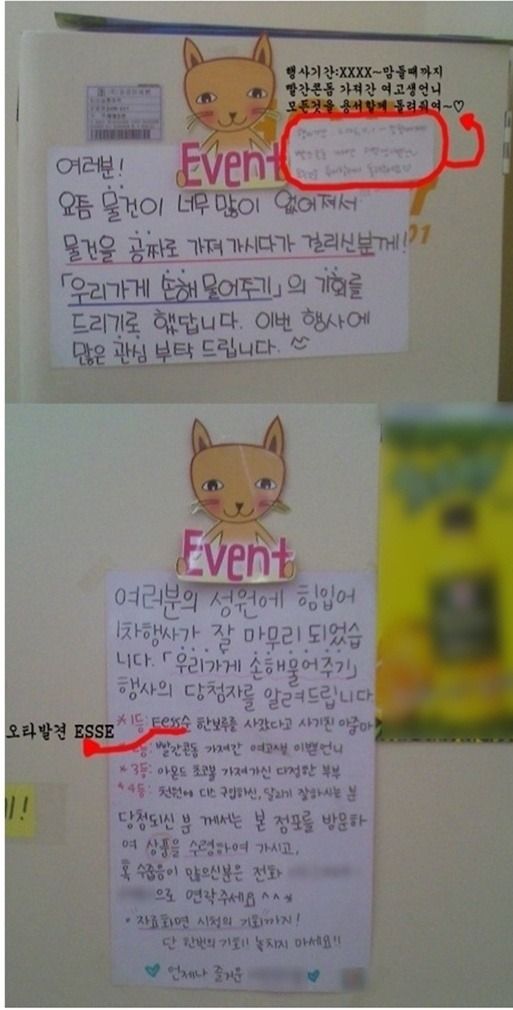 행사기간:XXXX~맘들때까지
빨간콘돔 가져간 여고생언니
모든것을 용서할께 돌려줘여~♡
Event
여러분!
요즘 물건이 너무 많이 없어져서
물건을 공짜로 가져 가시다가 걸리신분께!
「우리가게 손해 물어주기」의 기회를
드리기로 했답니다. 이번 행사에
많은 관심 부탁 드립니다.
01
Event
여러분의 성원에 힘입어
1차행사가 잘 마무리 되었습
니다. 「우리가게 손해물어주기」
행사의 당첨자를 알려드립니다
오타발견 ESSE
*1등: Eess순 한보루를 사갔다고 사기친 아줌마
*2등: 빨간콘돔 가져간 여고생 이쁜언니
*3등: 아몬드 초코볼 가져가신 다정한 부부
*4등: 천원에 디스 구입하신, 달리기 잘하시는 분
당첨되신 분 께서는 본 점포를 방문하
여 상품을 수령하여 가시고,
혹 수줍음이 많으신분은 전화
으로 연락주세요 ^^*
• 자료화면 시청의 기회까지!
단 한번의 기회!! 놓치지 마세요!!
언제나 즐거운
!